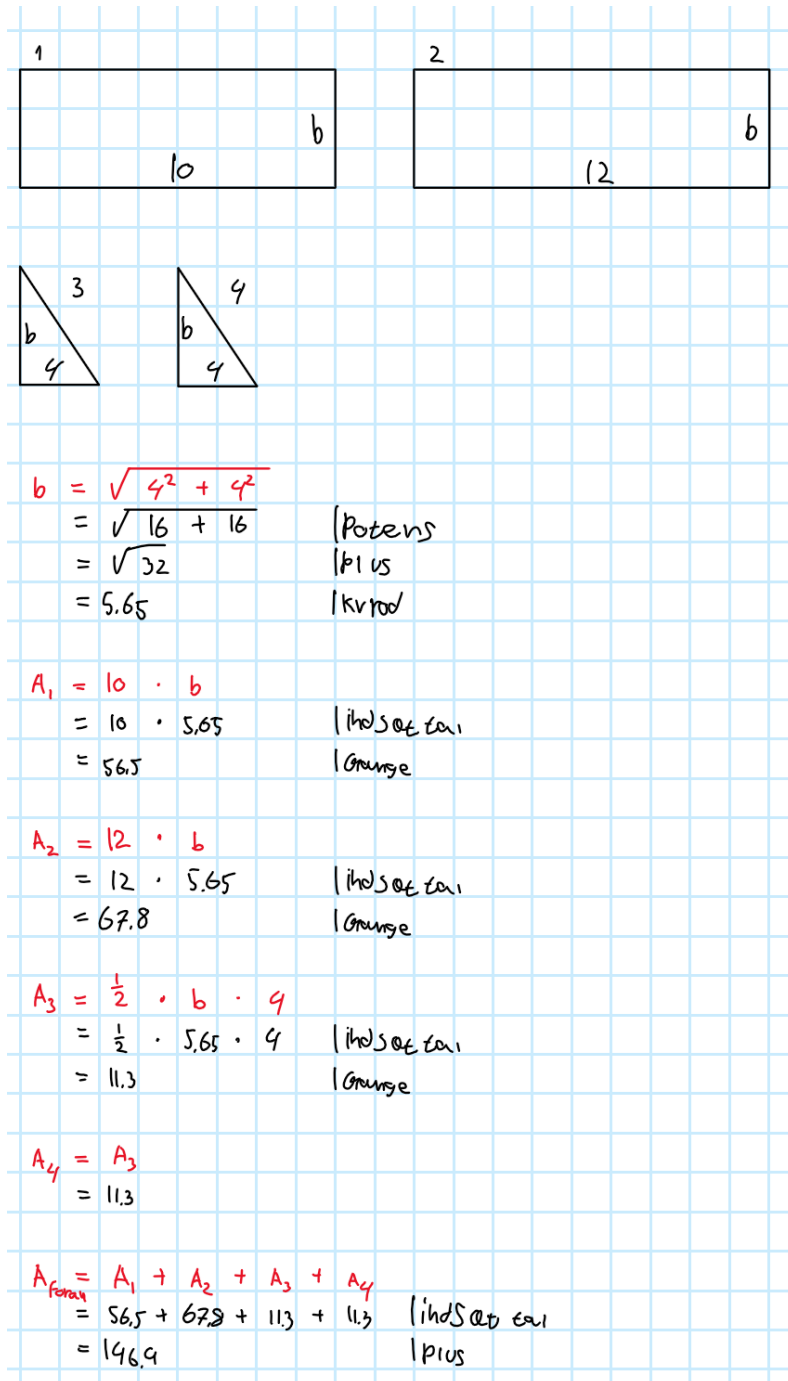 1 2
b b
10 12
3 4
b b
4 4
b = √ 4² + 4²
= √ 16 + 16 | Potens
= √ 32 | plus
= 5.65 | kvrod
A₁ = 10 · b
= 10 · 5,65 | indsæt tal
= 56,5 | Gange
A₂ = 12 · b
= 12 · 5.65 | indsæt tal
= 67.8 | Gange
A₃ = ½ · b · 4
= ½ · 5,65 · 4 | indsæt tal
= 11.3 | Gange
A₄ = A₃
= 11.3
A = A₁ + A₂ + A₃ + A₄
= 56,5 + 67.8 + 11.3 + 11.3 | indsæt tal
= 146.9 | plus